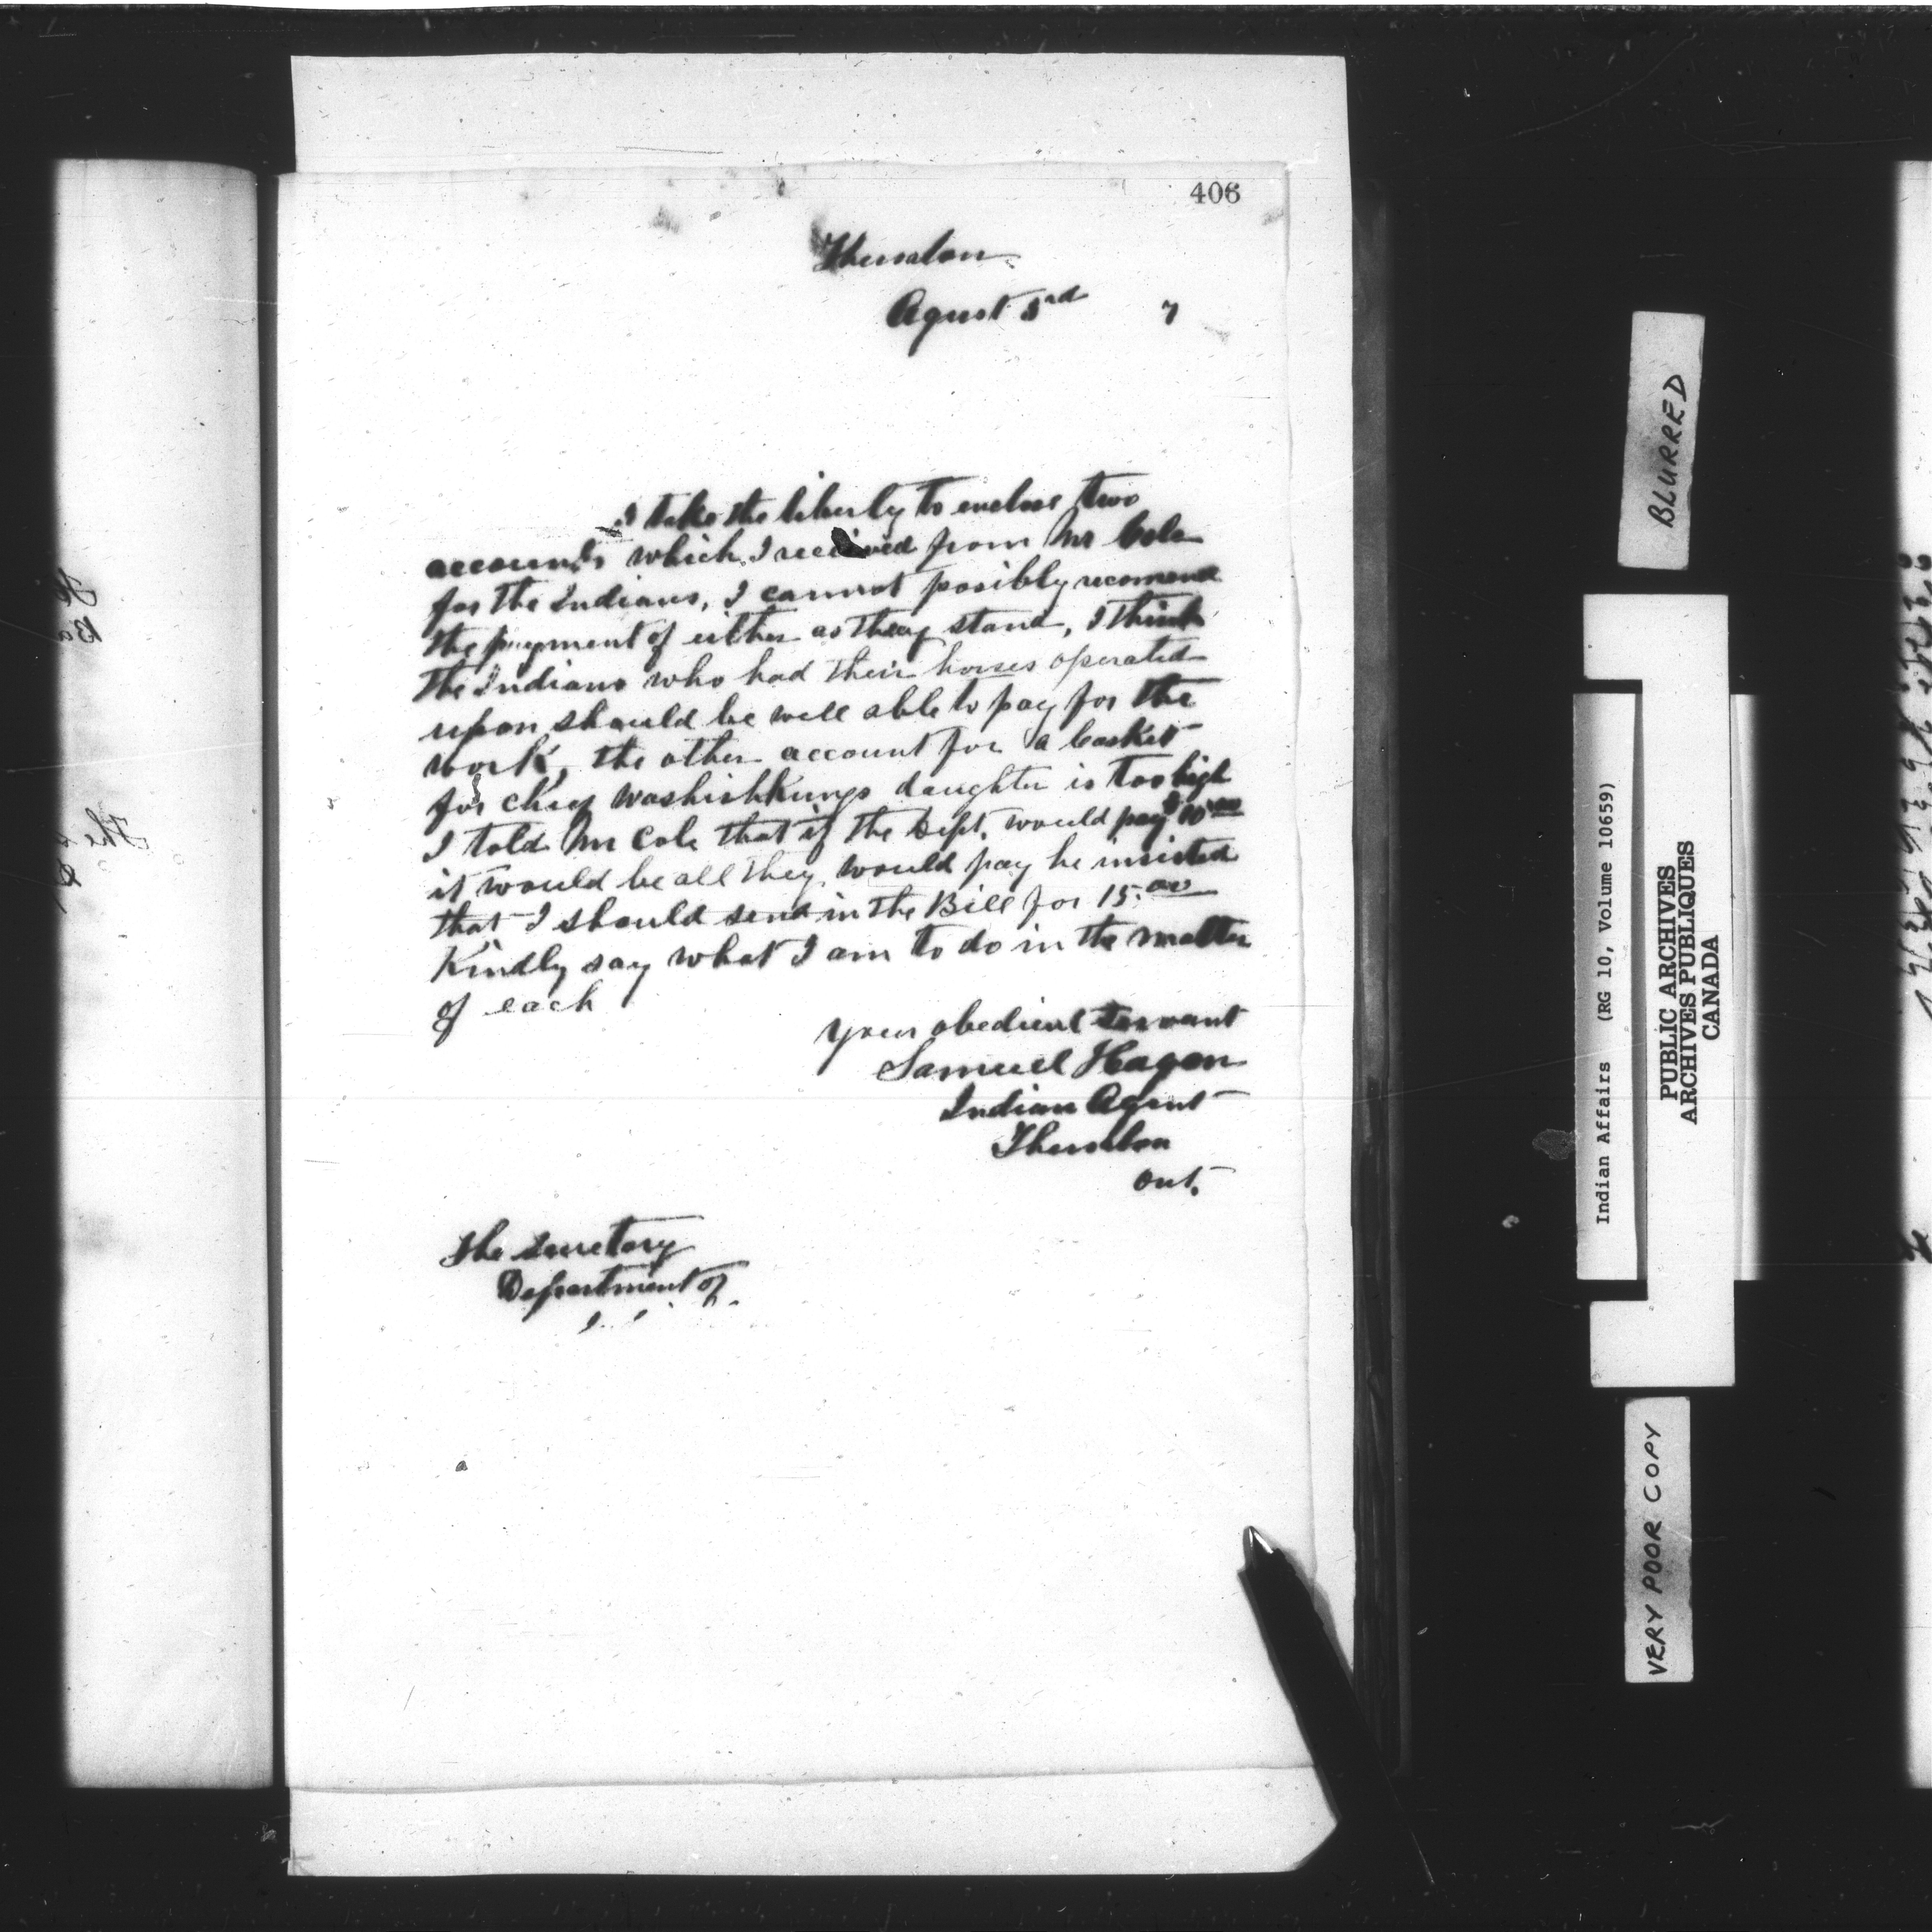 406
Thessalon
Agust 3rd 7
I take the liberty to enclose two
accounts which I received from Mr Cole
for the Indians, I cannot posibly recomend
the payment of either as they stand, I think
the Indians who had their horses operated
upon should be well able to pay for the
work, the other account for a casket
for chief Washishkungs daughter is too high
I told Mr Cole that if the Dept. would pay $10.00
it would be all they would pay he insisted
that I should send in the Bill for 15.00
Kindly say what I am to do in the matter
of each
your obedient servant
Samuel Hagan
Indian Agent
Thessalon
Ont.
The Secretary
Department of
BLURRED
Indian Affairs (RG 10, Volume 10659)
PUBLIC ARCHIVES
ARCHIVES PUBLIQUES
CANADA
VERY POOR COPY